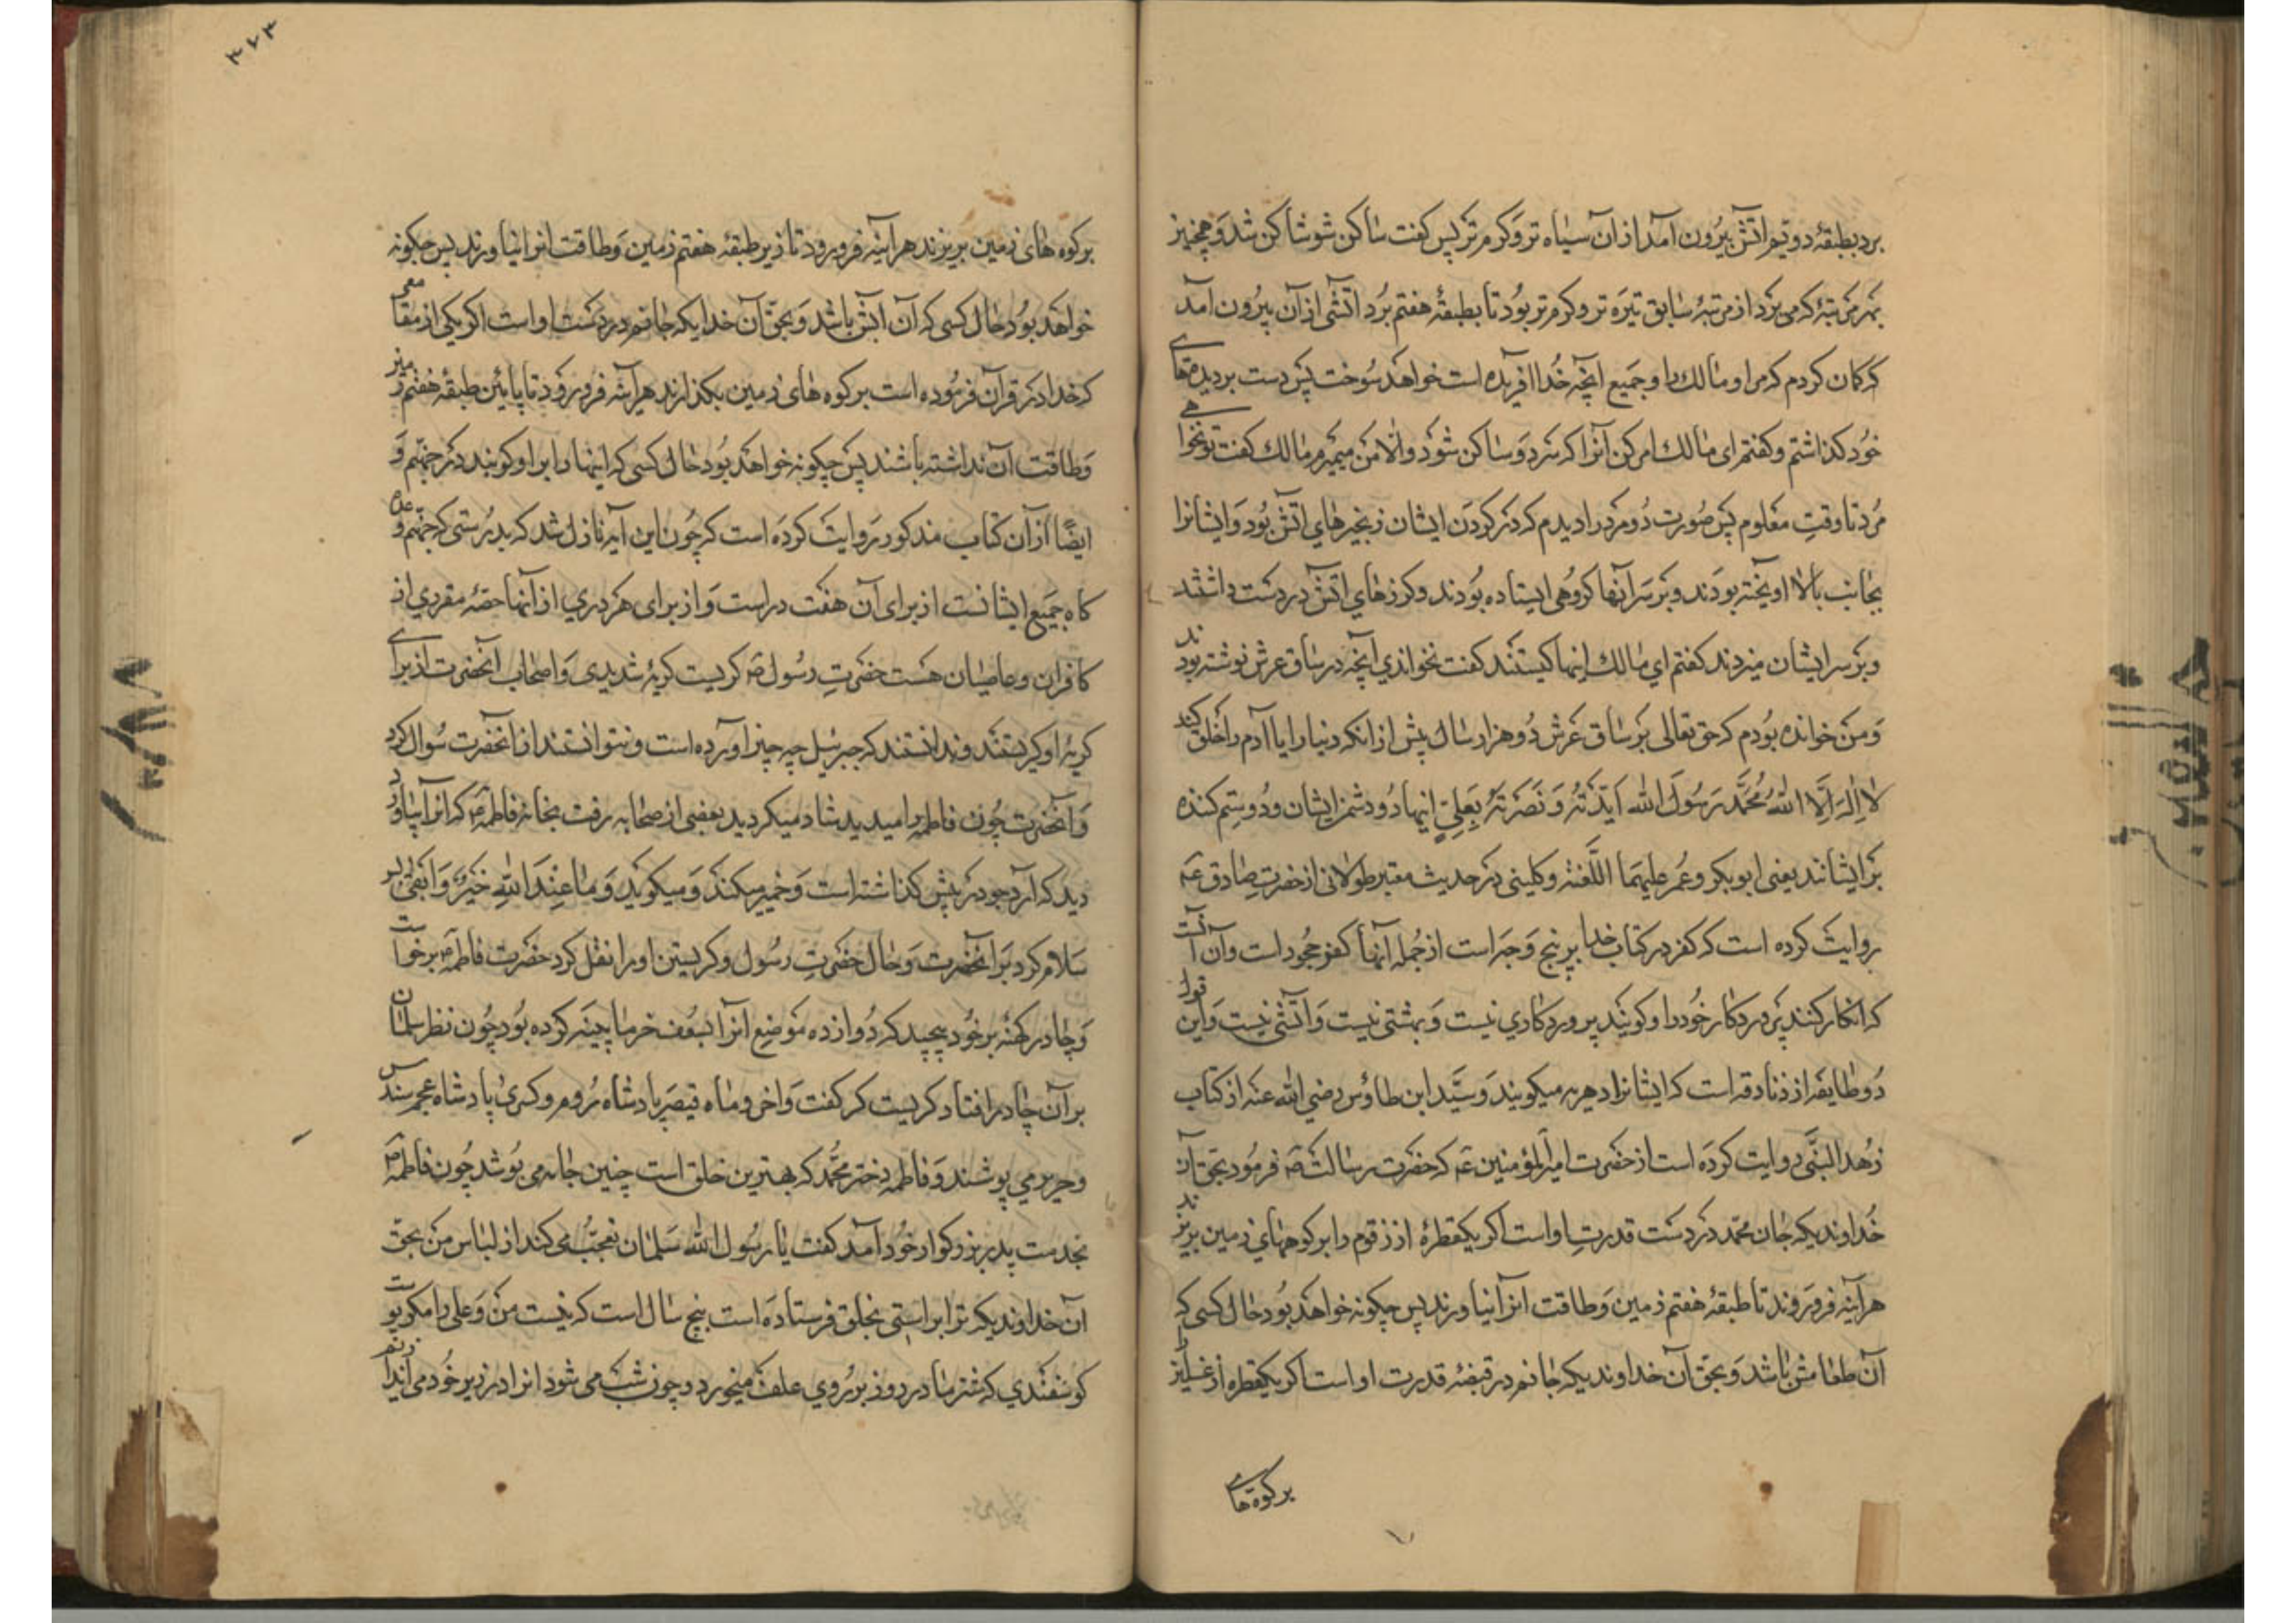 برد بطبقهٔ دویّم اتش بیرون آمد از آن سیاه تر و کرم تر پس کفت ساکن شو ساکن شد و همچنین
بهر مرتبهٔ که می برد از مرتبهٔ سابق تیره تر و کرم تر بود تا بطبقهٔ هفتم برد اتشی از آن بیرون آمد
که کمان کردم که مرا و مالک را و جمیع آنچه خدا افریده است خواهد سوخت پس دست بر دیده های
خود کذاشتم و کفتم ای مالک امر کن آنرا که سرد و ساکن شود و الا من میمیرم مالک کفت تو نخواهی
مرد تا وقت معلوم پس صورت دو مرد را دیدم که در کردن ایشان زنجیرهای اتش بود و ایشانرا
بجانب بالا اویخته بودند و بر سر آنها کروهی ایستاده بودند و کرزهای اتش در دست داشتند
و بر سر ایشان میزدند کفتم ای مالک اینها کیستند کفت نخواندی آنچه در ساق عرش نوشته بودند
و من خوانده بودم که حق تعالی بر ساق عرش دو هزار سال پیش از انکه دنیا را یا آدم را خلق کند
لا اله الا الله محمد رسول الله ایّدته و نصرته بعلیّ اینها دو دشمن ایشان و دو ستم کننده
بر ایشانند یعنی ابوبکر و عمر علیهما اللعنه و کلینی در حدیث معتبر طولانی از حضرت صادق عه
روایت کرده است که کفر در کتاب خدا بر پنج وجه است از جمله آنها کفر جحود است و آن آنست
که انکار کنند پروردکار خود را و کویند پروردکاری نیست و بهشتی نیست و آتشی نیست و این قول
دو طایفه از زنادقه است که ایشانرا دهریه میکویند و سیّد ابن طاؤس رضی الله عنه از کتاب
زهد النبی روایت کرده است از حضرت امیر المؤمنین عه که حضرت رسالت صه فرمود بحق آن
خداوندیکه جان محمد در دست قدرت او است اکر یکقطرهٔ از زقوم را بر کوههای زمین بریزند
هر آینه فرو روند تا طبقهٔ هفتم زمین و طاقت آنرا نیاورند پس چکونه خواهد بود حال کسی که
آن طعامش باشد و بحق آن خداوندیکه جانم در قبضهٔ قدرت او است اکر یکقطره از غسلین را
بر کوه های
۳۷۳
بر کوه های زمین بریزند هر آینه فرو رود تا زیر طبقهٔ هفتم زمین و طاقت انرا نیاورند پس چکونه
خواهد بود حال کسی که آن آبش باشد و بحق آن خدایکه جانم در دست او است اکر یکی از مقامعی
که خدا در قرآن فرموده است بر کوه های زمین بکذارند هر آینه فرو رود تا پایین طبقهٔ هفتم زمین
و طاقت آن نداشته باشند پس چکونه خواهد بود حال کسی که اینها را بر او کوبند در جهنم و
ایضًا از آن کتاب مذکور روایت کرده است که چون این آیه نازل شد که بدرستی که جهنم وعده
کاه جمیع ایشانست از برای آن هفت در است و از برای هر دری از آنها حصهٔ مقرری از
کافران و عاصیان هست حضرت رسول صه کریست کریهٔ شدیدی و اصحاب انحضرت از برای
کریهٔ او کریستند و ندانستند که جبرئیل چه چیز اورده است و نتوانستند از انحضرت سوال کرد
و آنحضرت چون فاطمه را میدید شاد میکردید بعضی از صحابه رفت بخانهٔ فاطمه که انرا بیاورد
دید که آرد جو در پیش کذاشته است و خمیر میکند و میکوید و ما عند الله خیر و ابقی پس
سلام کرد بر انحضرت و حال حضرت رسول و کریستن او را نقل کرد حضرت فاطمه برخواست
و چادر کهنه بر خود پیچید که دوازده موضع انرا بسعف خرما پینه کرده بود چون نظر سلمان
بر آن چادر افتاد کریست که کفت واخروماه قیصر پادشاه روم و کسری پادشاه عجم سندس
و حریر می پوشند و فاطمه دختر محمد که بهترین خلق است چنین جامه می پوشد چون فاطمه
بخدمت پدر بزرکوار خود آمد کفت یا رسول الله سلمان تعجب می کند از لباس من بحق
آن خداوندیکه ترا براستی بخلق فرستاده است پنج سال است که نیست من و علی را مکر پوست
کوسفندی که شتر ما در روز بر روی علف میخورد و چون شب می شود انرا در زیر خود می اندازیم